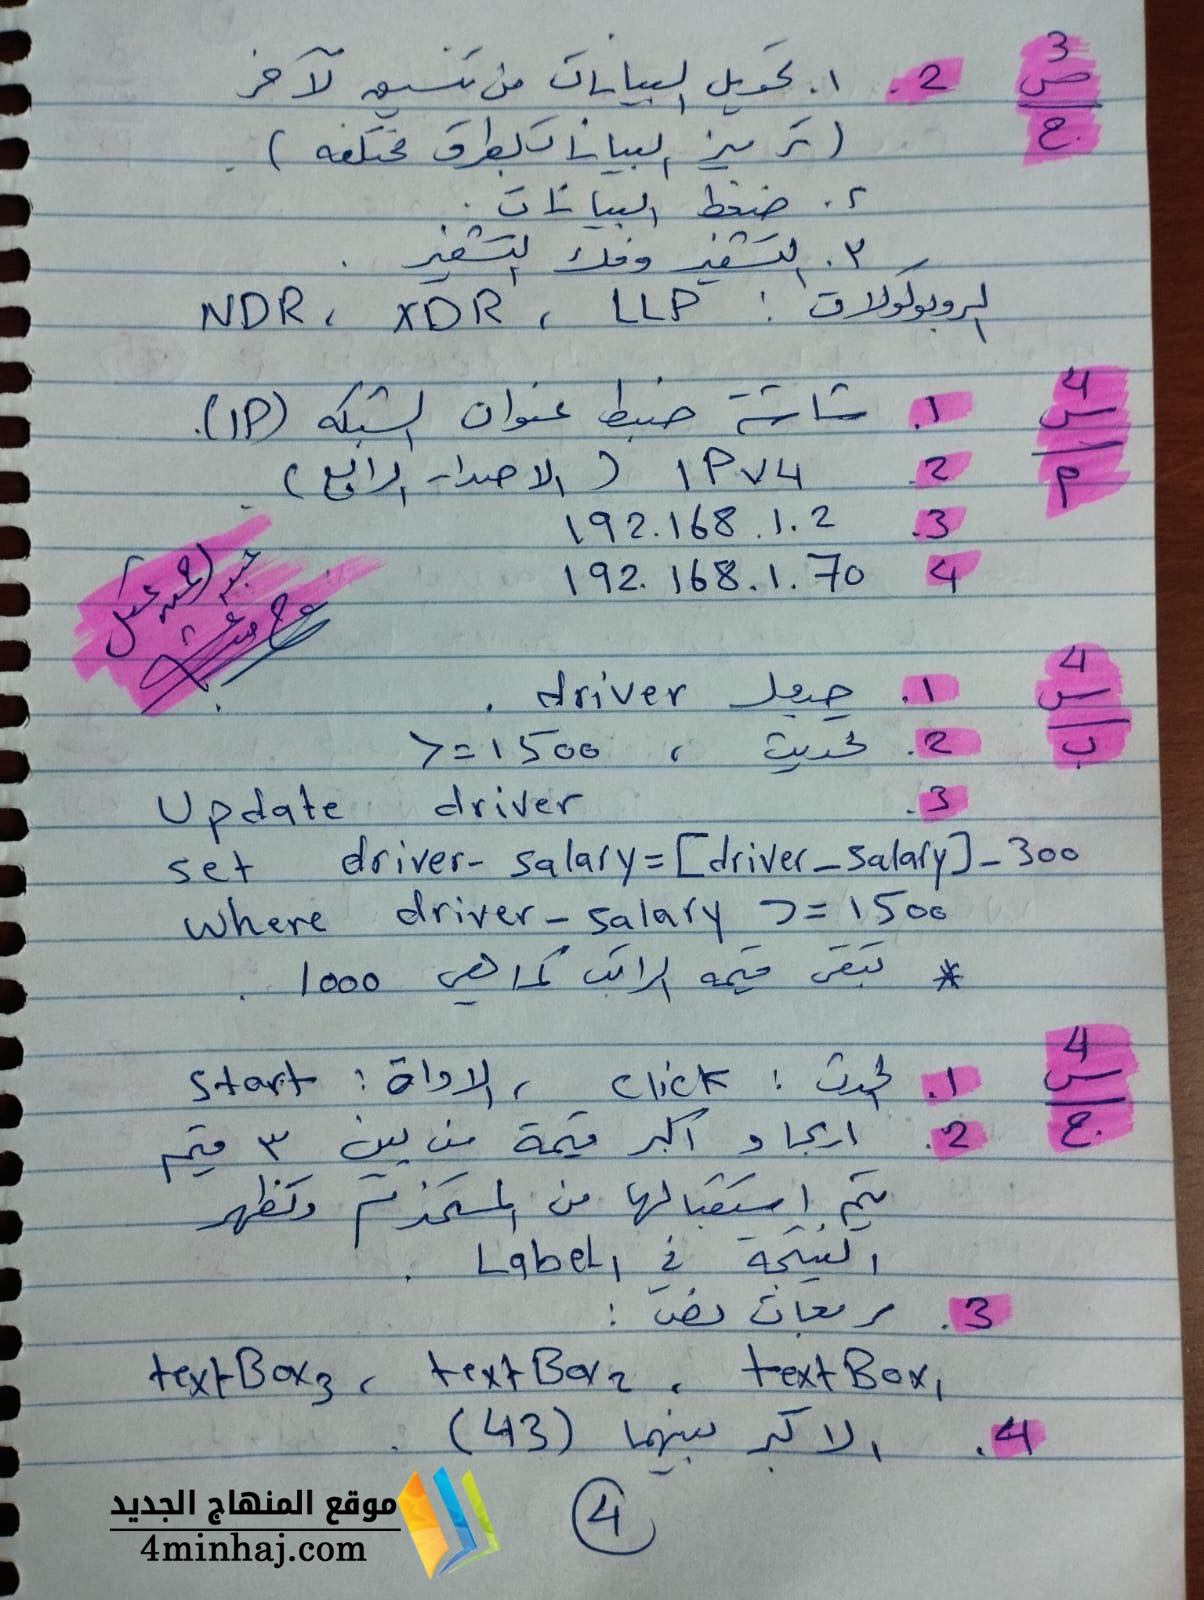 3
س
ج
2. ١. تحويل البيانات من تنسيق لآخر
(ترميز البيانات بطرق مختلفه).
٢. ضغط البيانات.
٣. التشفير وفك التشفير.
البروتوكولات: LLP، XDR، NDR
4
س
م
1. شاشة ضبط عنوان الشبكه (IP).
2. IPV4 (الاصدار الرابع).
3. 192.168.1.2
4 192.168.1.70
4
س
ب
1. جدول driver.
2. تحديث، >=1500
3. Update driver
set driver-salary=[driver_salary]-300
where driver-salary >=1500
* تبقى قيمه الراتب كما هي 1000.
4
س
ج
1. الحدث: click، الاداة: Start
2. ايجاد اكبر قيمة من بين ٣ قيم
يتم استقبالها من المستخدم وتظهر
النتيجة في Label1.
3. مربعات نص:
textBox1، textBox2، textBox3
4. الاكبر بينهما (43).
4
موقع المنهاج الجديد
4minhaj.com